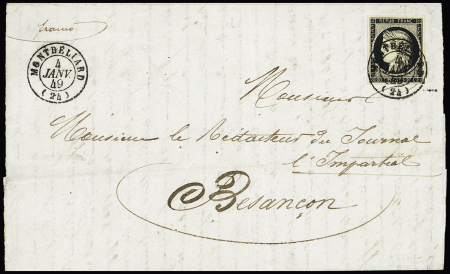 franco
MONTBÉLIARD
4
JANV
49
(24)
REPUB FRANC
(24)
Monsieur
Monsieur le Rédacteur du Journal
l'Impartial
Besançon